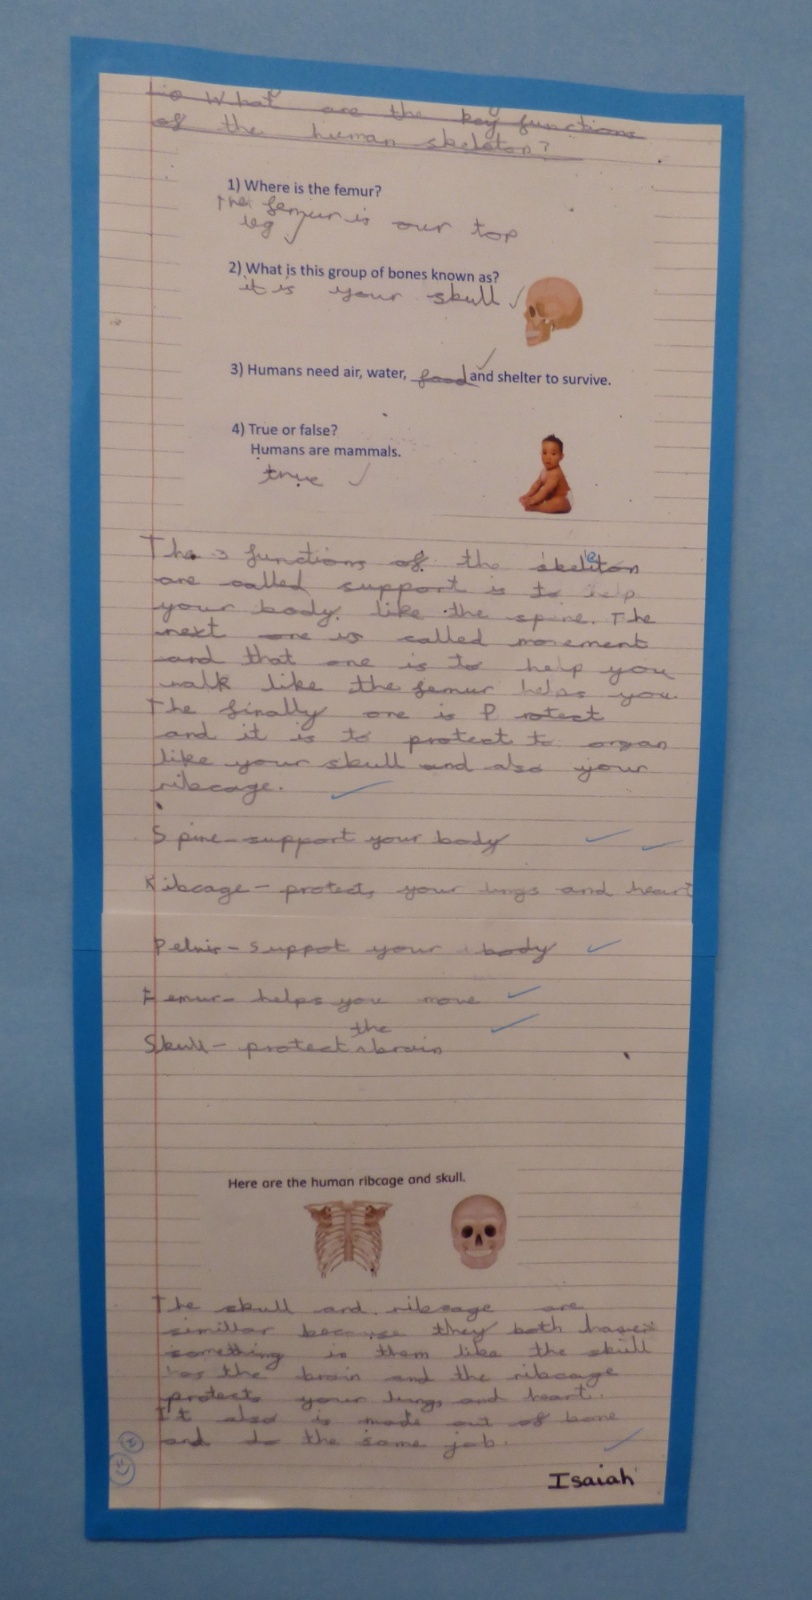 Lo What are the key functions
of the human skeleton?
1) Where is the femur?
The femur is our top
leg
2) What is this group of bones known as?
it is your skull
3) Humans need air, water, food and shelter to survive.
4) True or false?
Humans are mammals.
true
The 3 functions of the skeleton
are called support is to help
your body. like the spine. The
next one is called movement
and that one is to help you
walk like the femur helps you
The finally one is Protect
and it is to protect to organ
like your skull and also your
ribcage.
Spine - support your body
Ribcage - protects your lungs and heart
Pelvis - suppot your body
Femur - helps you move
the
Skull - protect brain
Here are the human ribcage and skull.
The skull and ribcage are
simillar because they both have
something in them like the skull
has the brain and the ribcage
protects your lungs and heart.
It also is made out of bone
and do the same job.
Isaiah